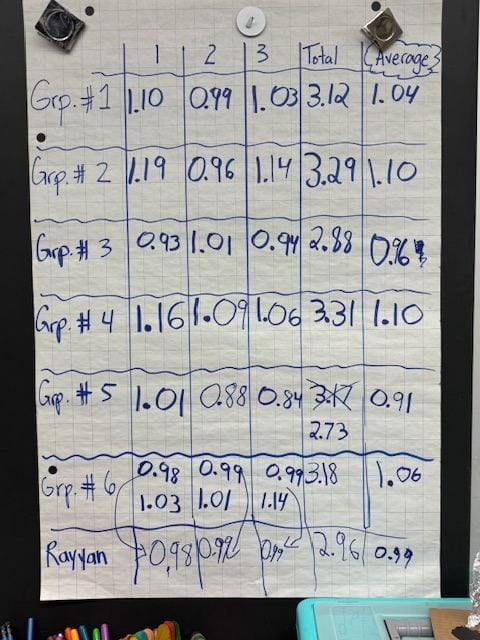 1 2 3 Total Average
Grp. #1 1.10 0.99 1.03 3.12 1.04
Grp. #2 1.19 0.96 1.14 3.29 1.10
Grp. #3 0.93 1.01 0.94 2.88 0.96
Grp. #4 1.16 1.09 1.06 3.31 1.10
Grp. #5 1.01 0.88 0.84 3.17 0.91
2.73
Grp. #6 0.98 0.99 0.99 3.18 1.06
1.03 1.01 1.14
Rayyan 0.98 0.99 0.99 2.96 0.99